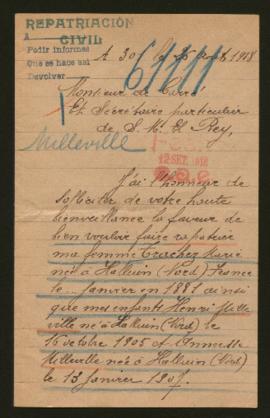 REPATRIACIÓN
CIVIL
A
Pedir informes
Que se hace así
Devolver
A 30 1918
61111
Monsieur de
Et Secrétaire particulier
de S. M. El Rey,
Milleville
12 SET. 1918
J'ai l'honneur de
solliciter de votre haute
bienveillance la faveur de
bien vouloir faire rapatrier
ma femme Trachez Marie
née à Halluin (Nord) France
le janvier en 1881 ainsi
que mes enfants Henri Mille
ville né à Halluin (Nord) le
16 octobre 1905 et
Milleville née à Halluin (Nord)
le 13 janvier 1907.